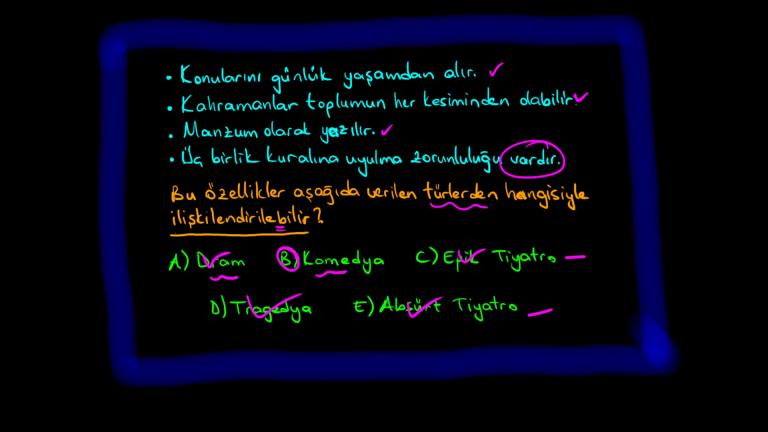 • Konularını günlük yaşamdan alır.
• Kahramanlar toplumun her kesiminden olabilir.
• Manzum olarak yazılır.
• Üç birlik kuralına uyulma zorunluluğu vardır.
Bu özellikler aşağıda verilen türlerden hangisiyle
ilişkilendirilebilir?
A) Dram B) Komedya C) Epik Tiyatro
D) Tragedya E) Absürt Tiyatro